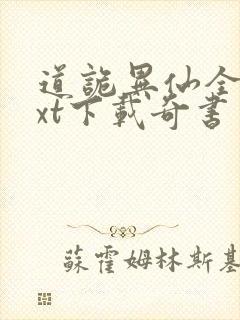 道詭異仙全
xt下載奇書
蘇霍姆林斯基